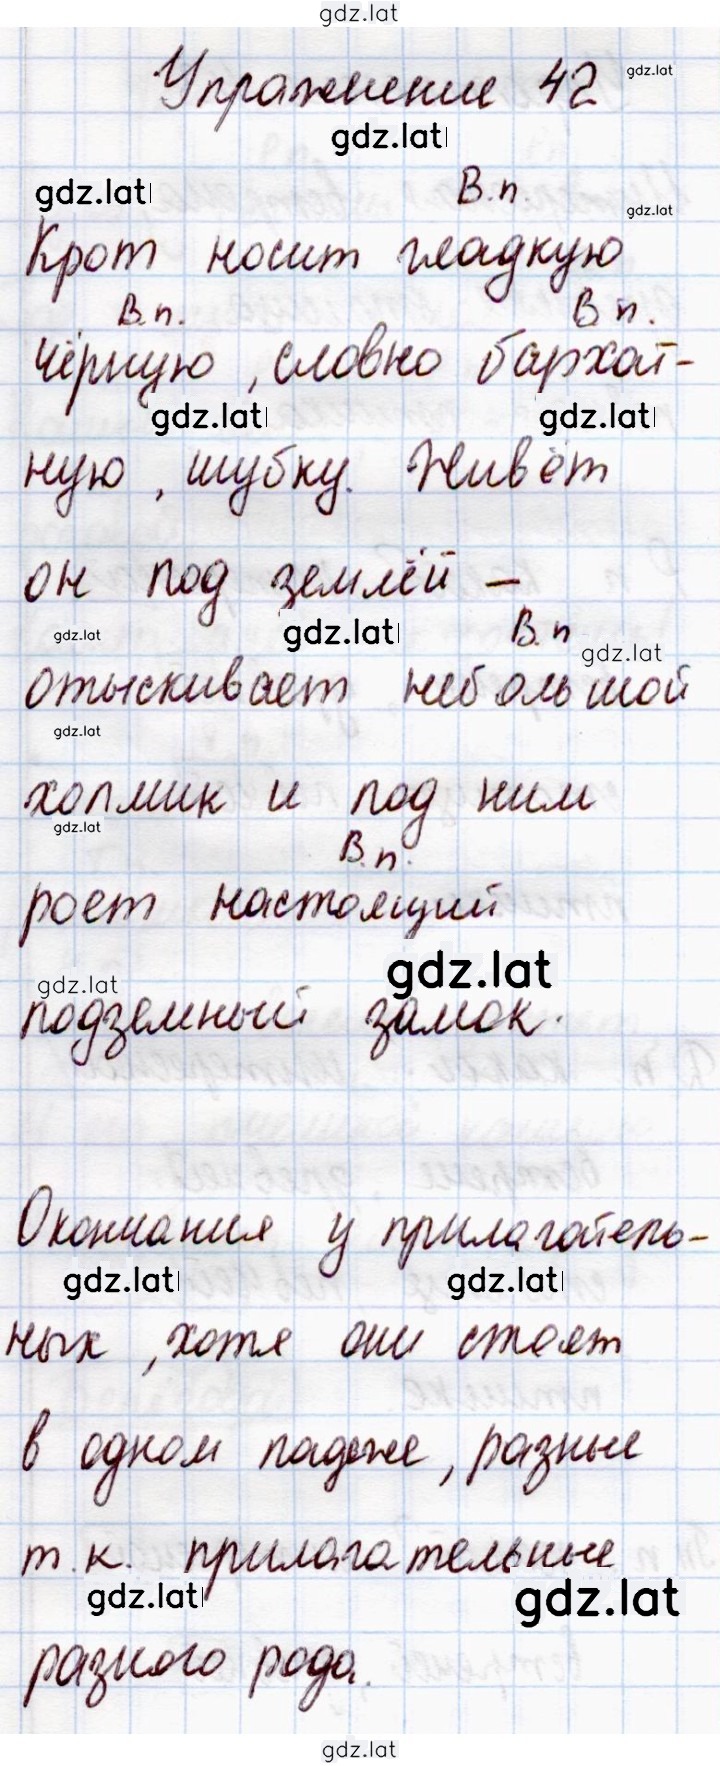 gdz.lat
Упражнение 42
gdz.lat
gdz.lat
gdz.lat
В.п.
gdz.lat
Крот носит гладкую
В.п. В п.
чёрную, словно бархат-
gdz.lat gdz.lat
ную, шубку. Живёт
он под землёй –
gdz.lat gdz.lat В.п
gdz.lat
отыскивает небольшой
gdz.lat
холмик и под ним
gdz.lat
В.п.
роет настоящий
gdz.lat
gdz.lat
подземный замок.
Окончания у прилагатель-
gdz.lat gdz.lat
ных, хотя они стоят
в одном падеже, разные
т.к. прилагательные
gdz.lat gdz.lat
разного рода.
gdz.lat